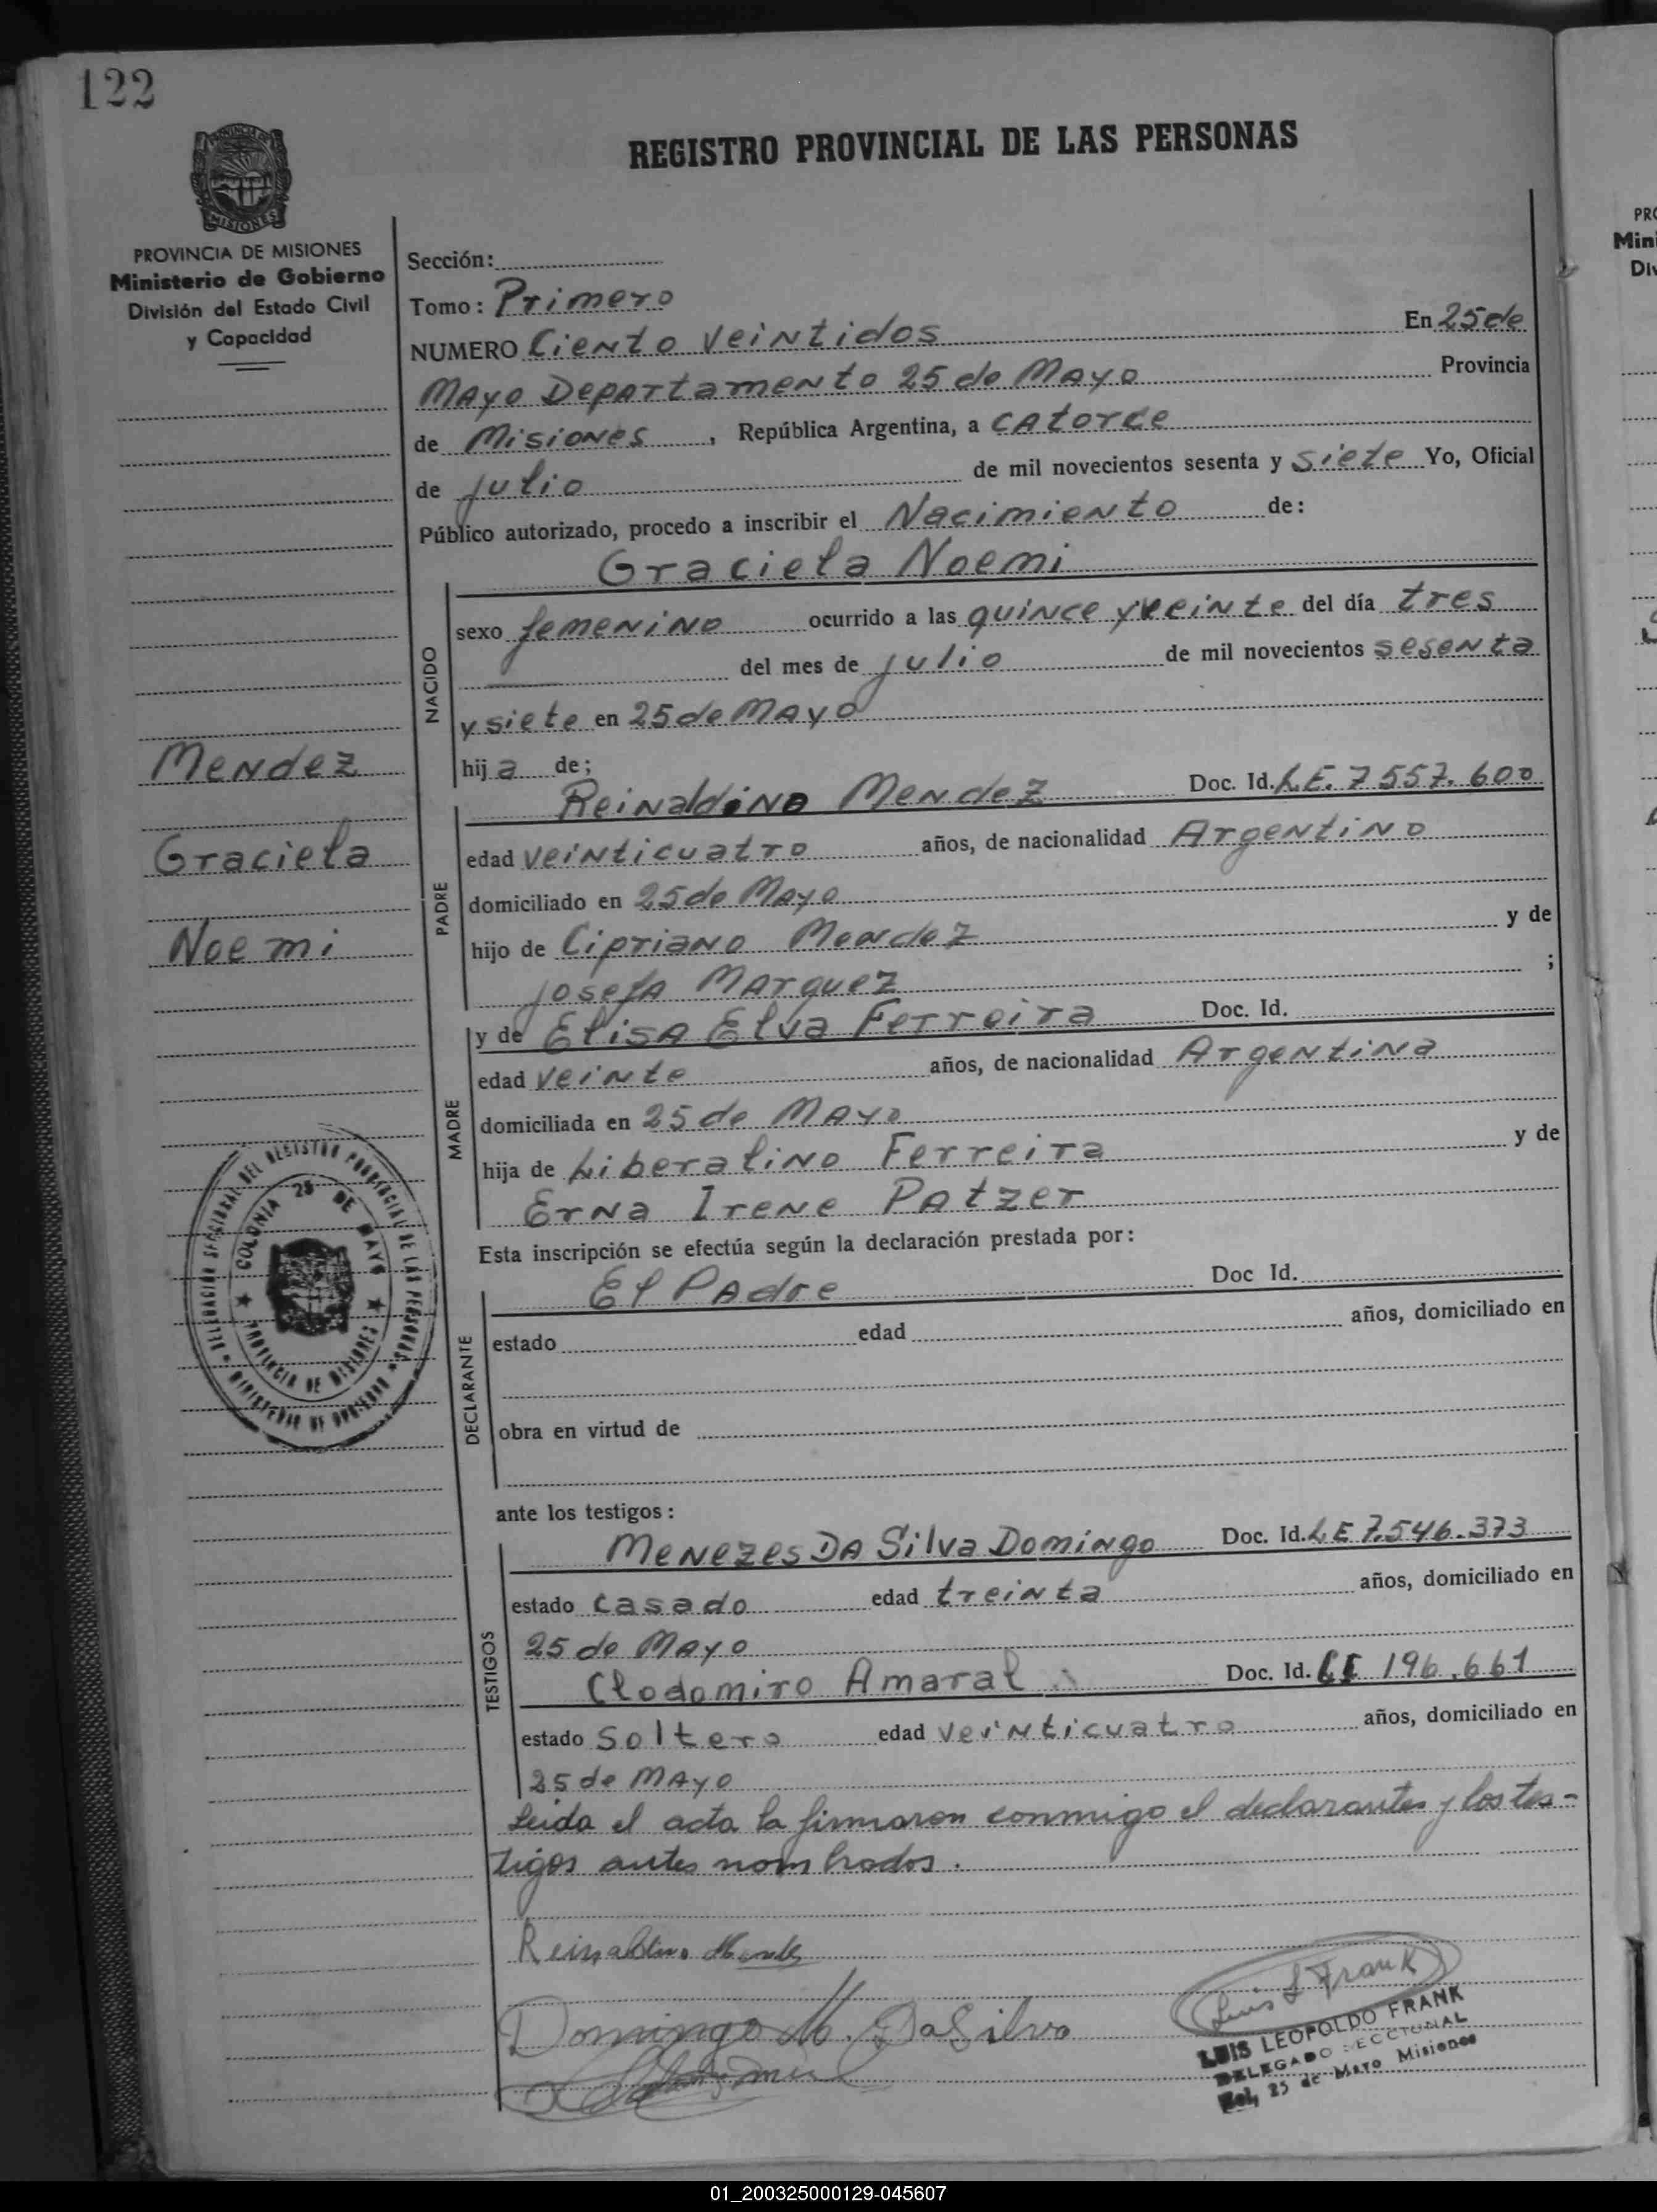 122
REGISTRO PROVINCIAL DE LAS PERSONAS
PROVINCIA DE MISIONES
MISIONES
PROVINCIA DE MISIONES
Ministerio de Gobierno
División del Estado Civil
y Capacidad
Mendez
Graciela
Noemi
DELEGACION SECCIONAL DEL REGISTRO PROVINCIAL DE LAS PERSONAS
MINISTERIO DE GOBIERNO
COLONIA 25 DE MAYO
PROVINCIA DE MISIONES
Sección:
Tomo: Primero
NUMERO Ciento veintidos En 25 de
Mayo Departamento 25 de Mayo Provincia
de Misiones, República Argentina, a catorce
de julio de mil novecientos sesenta y siete Yo, Oficial
Público autorizado, procedo a inscribir el Nacimiento de:
Graciela Noemi
NACIDO
sexo femenino ocurrido a las quince y veinte del día tres
del mes de julio de mil novecientos sesenta
y siete en 25 de Mayo
hij a de;
Reinaldino Mendez Doc. Id. L.E. 7557.600
PADRE
edad veinticuatro años, de nacionalidad Argentino
domiciliado en 25 de Mayo
hijo de Cipriano Mendez y de
Josefa Marquez ;
y de Elisa Elva Ferreira Doc. Id.
MADRE
edad veinte años, de nacionalidad Argentina
domiciliada en 25 de Mayo
hija de Liberalino Ferreira y de
Erna Irene Patzer
Esta inscripción se efectúa según la declaración prestada por:
El Padre Doc Id.
DECLARANTE
estado edad años, domiciliado en
obra en virtud de
ante los testigos:
Menezes Da Silva Domingo Doc. Id. LE 7.546.373
TESTIGOS
estado casado edad treinta años, domiciliado en
25 de Mayo
Clodomiro Amaral Doc. Id. CI 196.661
estado soltero edad veinticuatro años, domiciliado en
25 de Mayo
Leida el acta la firmaron conmigo el declarantes y los tes-
tigos antes nombrados.
Reinaldino Mendez
Domingo M. DaSilva
Luis L Frank
LUIS LEOPOLDO FRANK
DELEGADO SECCIONAL
Col, 25 de Mayo Misiones
PRO
Mini
Div
01_200325000129-045607